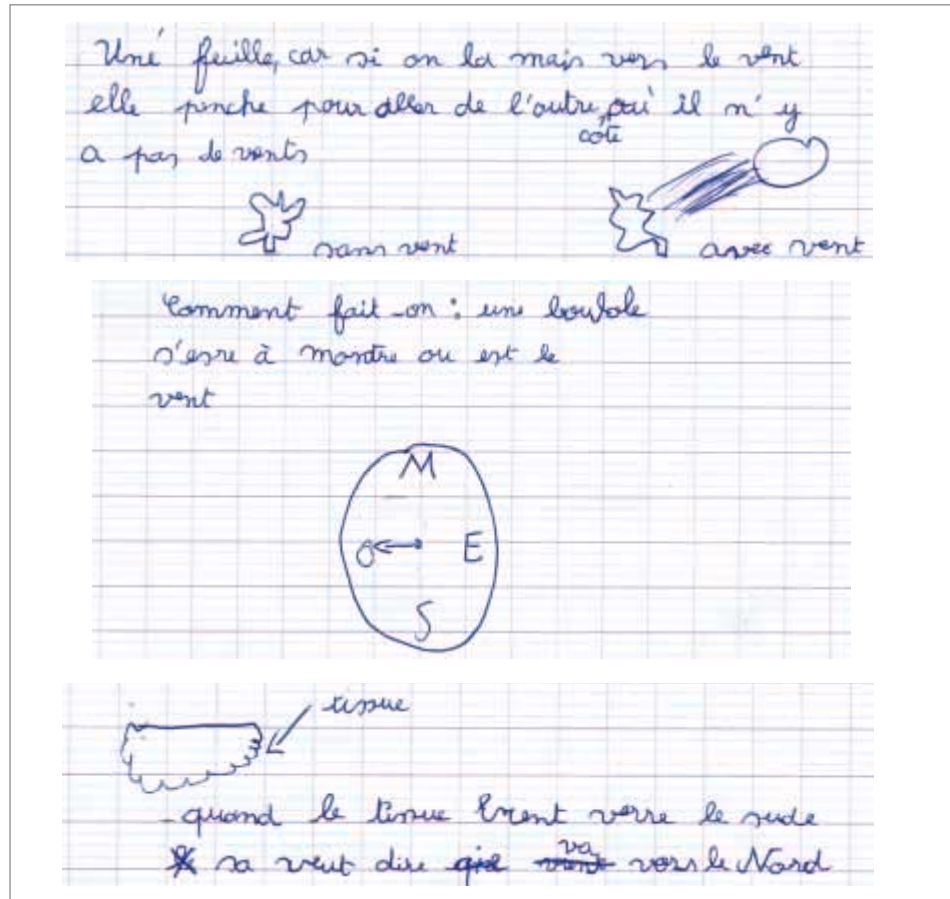 Une feuille, car si on la mais vers le vent
elle penche pour aller de l'autre côté, où il n'y
a pas de vents
sans vent
avec vent
Comment fait-on : une boussole
s'esre à montre ou est le
vent
N
O E
S
tissue
- quand le tissue verre le sude
sa veut dire va vers le Nord